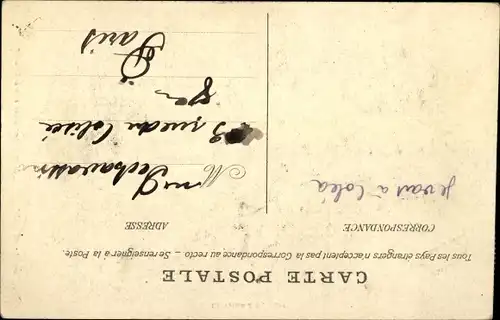 CARTE POSTALE
Tous les Pays étrangers n'acceptent pas la Correspondance au recto. — Se renseigner à la Poste.
CORRESPONDANCE
ADRESSE
je vais à
M
3 rue du Colisée
Paris